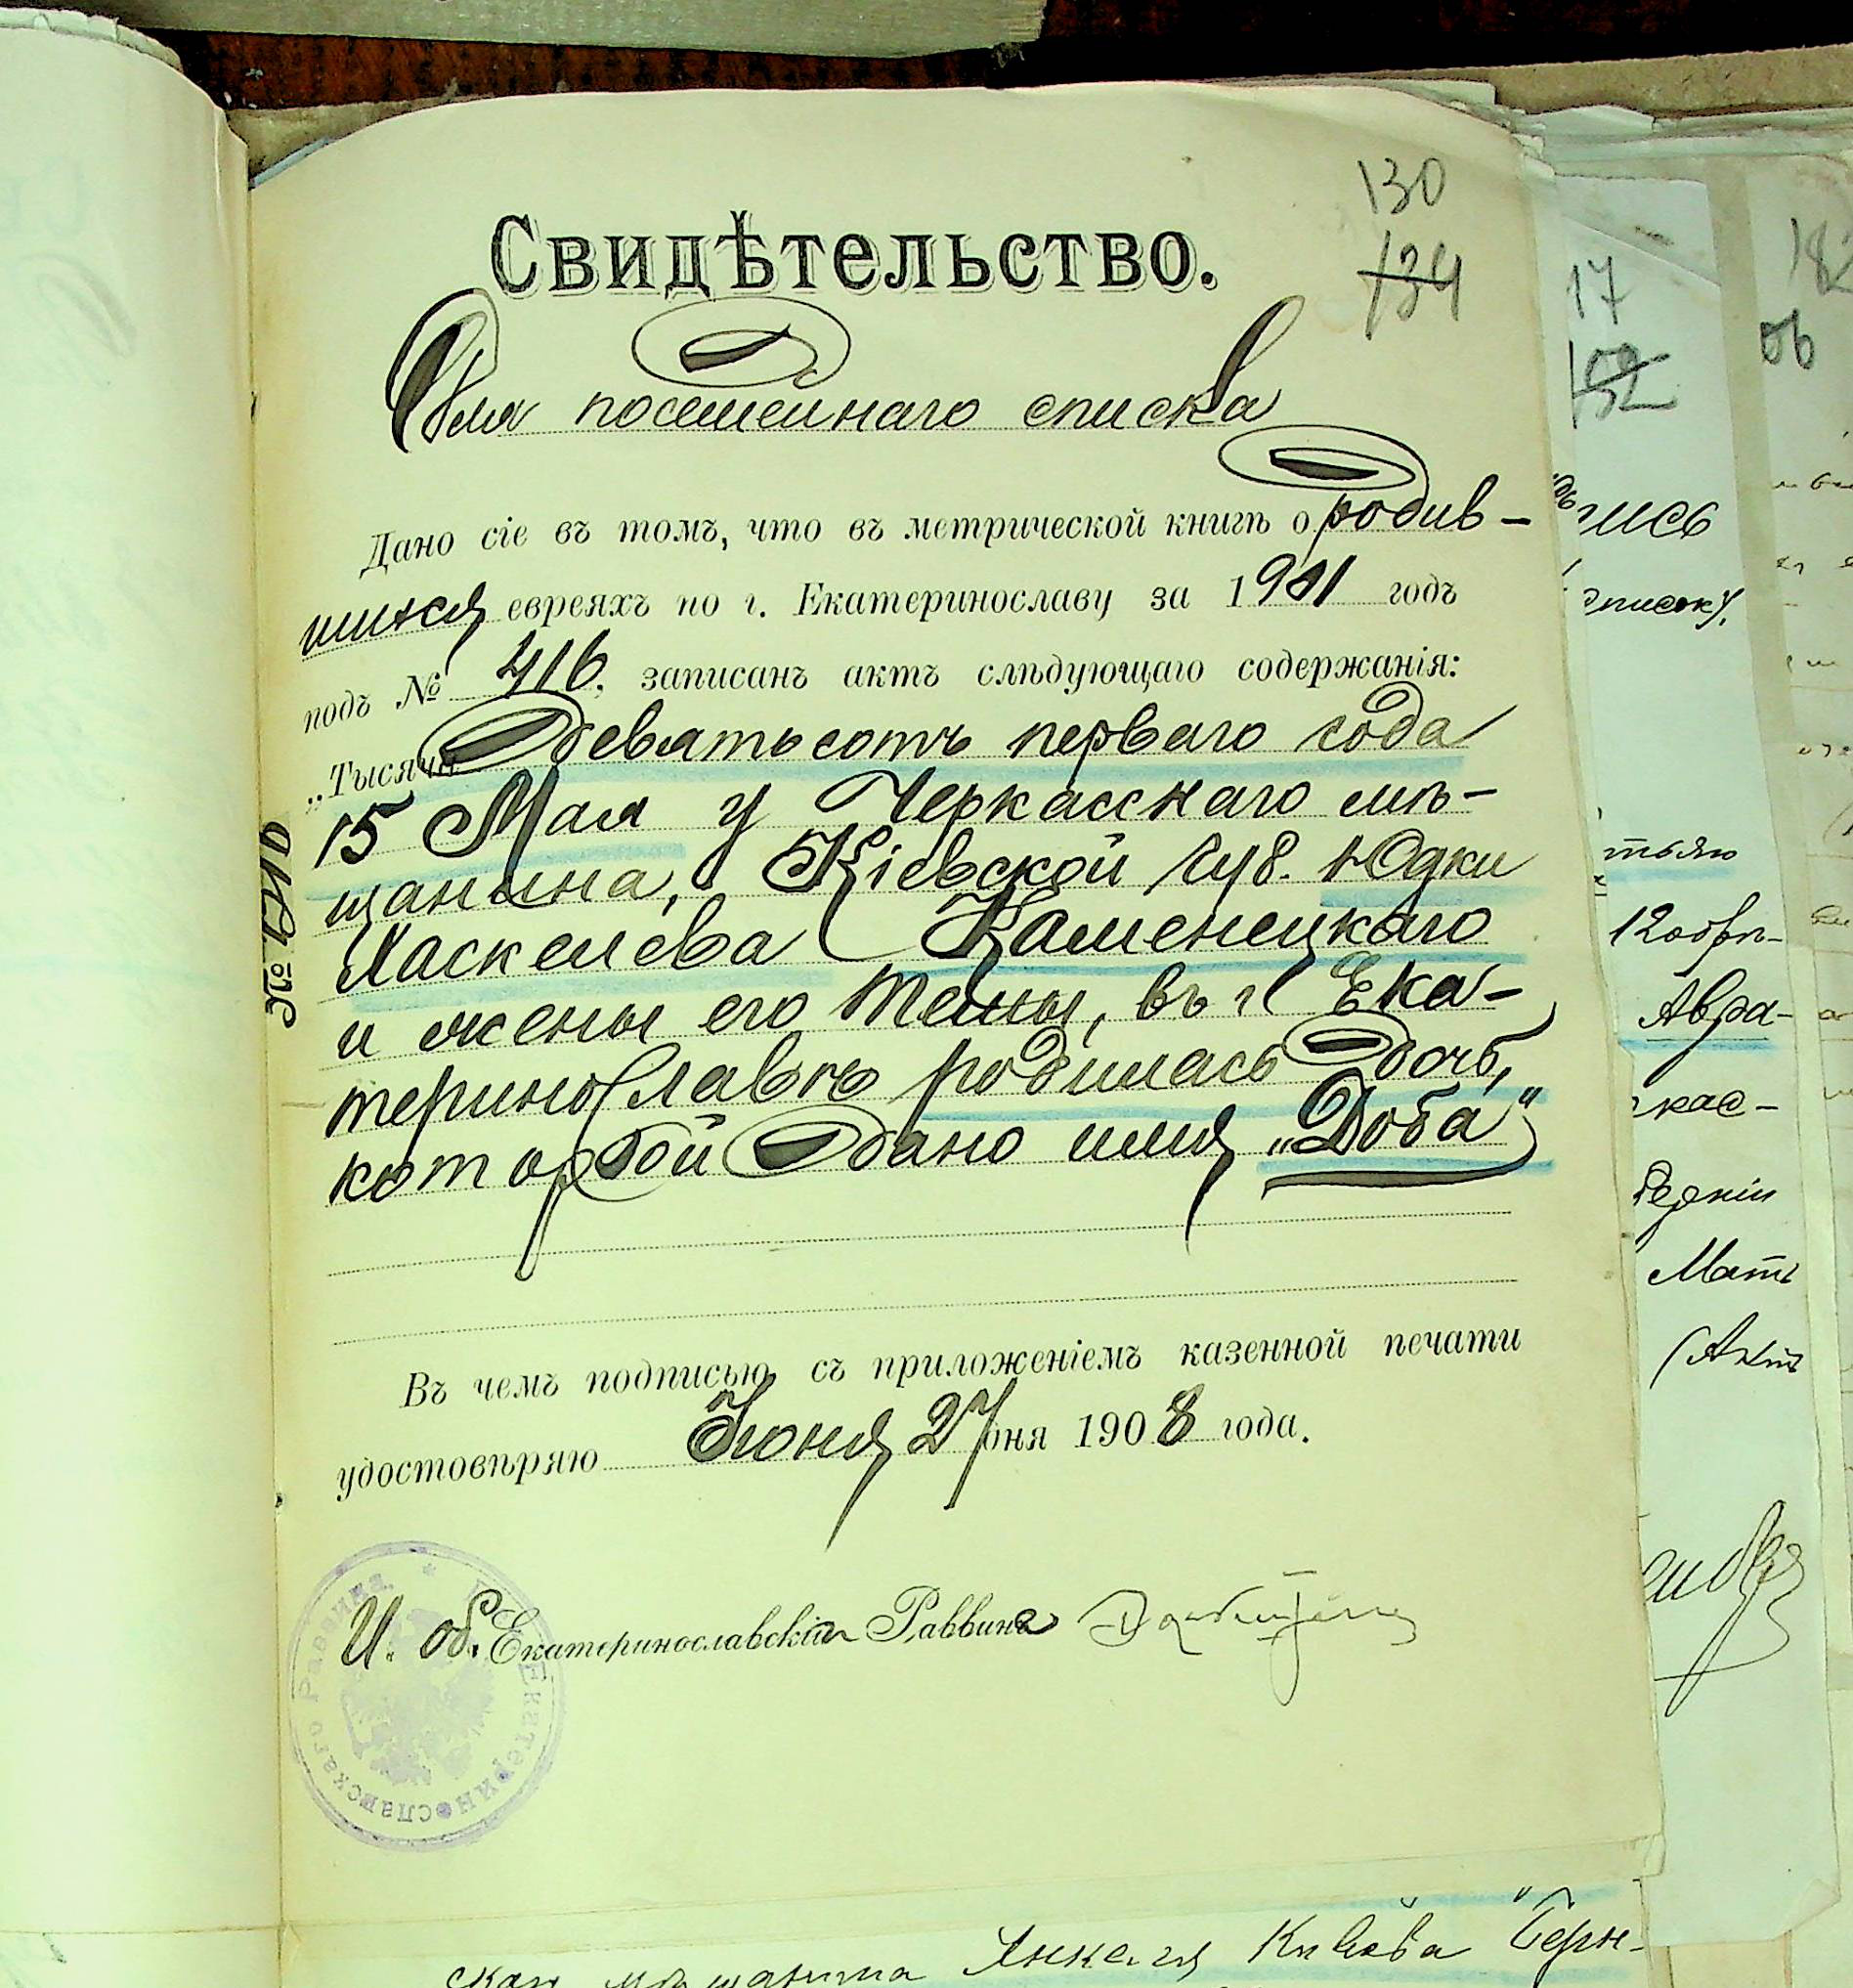 130
134
Свидѣтельство.
Для посемейнаго списка
Дано сіе въ томъ, что въ метрической книгѣ о родив-
шихся евреяхъ по г. Екатеринославу за 1901 годъ
подъ № 416. записанъ актъ слѣдующаго содержанія:
„Тысяча Девятьсотъ перваго года
15 Мая у Черкасскаго мѣ-
щанина, Кіевской губ. Юдки
Хаскелева Каменецкаго
и жены его Темы, въ г. Ека-
теринославѣ родилась дочь,
которой дано имя „Доба"
Въ чемъ подписью съ приложеніемъ казенной печати
удостовѣряю Іюня 27 дня 1908 года.
И. об. Екатеринославскій Раввина
Екатеринославскаго Раввина
17
182
06
списку.
12 обрѣ-
Авра-
кас-
Мать
(Актъ
мѣщанина Янкеля